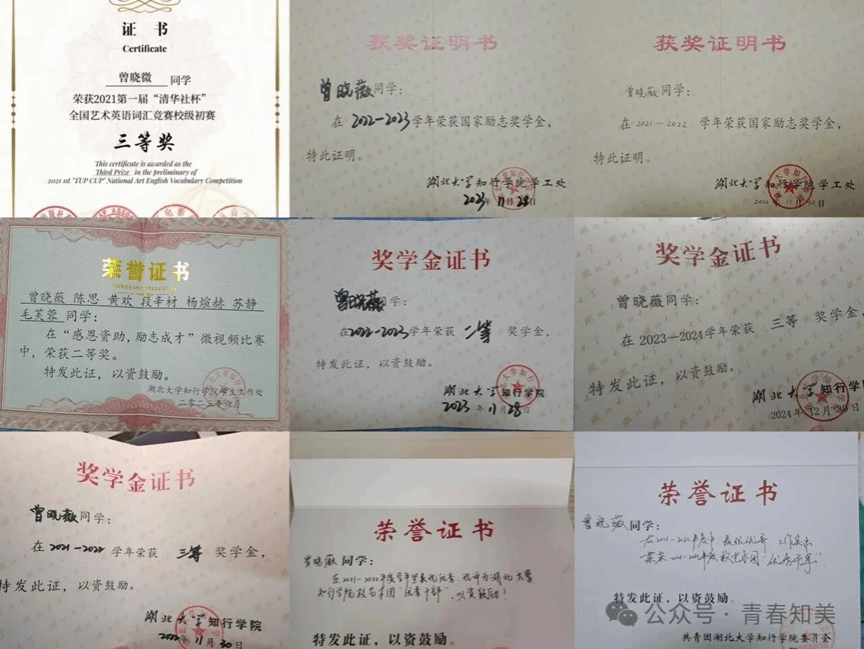 证 书
Certificate
曾晓微 同学
荣获2021第一届“清华社杯”
全国艺术英语词汇竞赛校级初赛
三等奖
This certificate is awarded as the
Third Prize in the preliminary of
2021 1st "TUP CUP" National Art English Vocabulary Competition
获奖证明书
曾晓薇同学：
在 2022—2023学年荣获国家励志奖学金，
特此证明。
湖北大学知行学院学工处
2023年 11月 28日
获奖证明书
曾晓薇同学：
在 2021－2022 学年荣获国家励志奖学金，
特此证明。
湖北大学知行学院学工处
荣誉证书
曾晓薇 陈思 黄欢 段辛材 杨煊赫 苏静
毛芙蓉 同学：
在“感恩资助，励志成才”微视频比赛
中，荣获二等奖。
特发此证，以资鼓励。
湖北大学知行学院学生工作处
奖学金证书
曾晓薇同学：
在2022-2023学年荣获 二等 奖学金，
特发此证，以资鼓励。
湖北大学知行学院
2023年 11月28日
奖学金证书
曾晓薇同学：
在2023—2024学年荣获 三等 奖学金，
特发此证，以资鼓励。
湖北大学知行学院
2024年12月30日
奖学金证书
曾晓薇同学：
在 2021-2022 学年荣获 三等 奖学金，
特发此证，以资鼓励。
湖北大学知行学院
2022年 11月 30日
荣誉证书
曾晓薇 同学：
在2021-2022年度学年里表现优秀，被评为湖北大学
知行学院校艺术团“优秀干部”，以资鼓励！
特发此证，以资鼓励。
荣誉证书
曾晓薇同学：
在2021-2022年度中，表现优异，工作
2021-2022年度校艺术团“优秀干事”
特发此证，以资鼓励。
共青团湖北大学知行学院委员会
公众号·青春知美